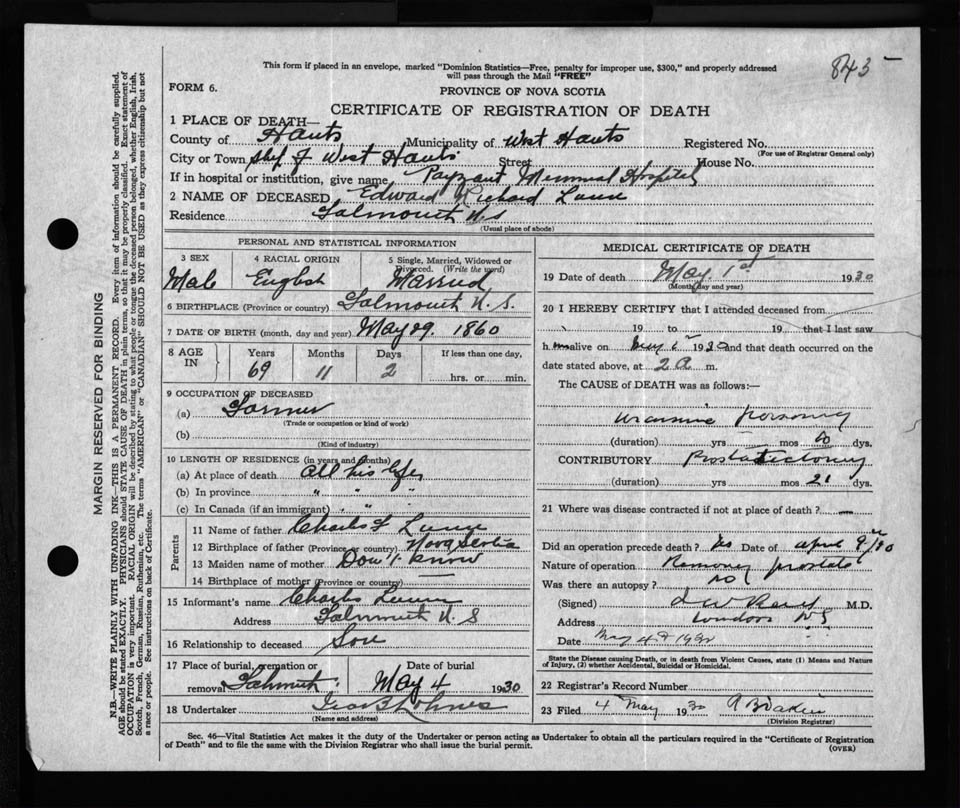 843
This form if placed in an envelope, marked "Dominion Statistics—Free, penalty for improper use, $300," and properly addressed
will pass through the Mail "FREE"
FORM 6.
PROVINCE OF NOVA SCOTIA
CERTIFICATE OF REGISTRATION OF DEATH
1 PLACE OF DEATH—
County of Hants Municipality of West Hants Registered No.
(For use of Registrar General only)
City or Town West Hants Street House No.
If in hospital or institution, give name Payzant Memorial Hospital
2 NAME OF DECEASED Edward Richard
Residence Falmouth N.S
(Usual place of abode)
PERSONAL AND STATISTICAL INFORMATION
3 SEX 4 RACIAL ORIGIN 5 Single, Married, Widowed or Divorced. (Write the word)
Male English Married
6 BIRTHPLACE (Province or country) Falmouth N.S.
7 DATE OF BIRTH (month, day and year) May 29. 1860
8 AGE IN Years Months Days If less than one day,
69 11 2 hrs. or min.
9 OCCUPATION OF DECEASED
(a) Farmer
(Trade or occupation or kind of work)
(b)
(Kind of industry)
10 LENGTH OF RESIDENCE (in years and months)
(a) At place of death all his life
(b) In province " " "
(c) In Canada (if an immigrant) " " "
Parents
11 Name of father Charles F
12 Birthplace of father (Province or country) Nova Scotia
13 Maiden name of mother Don't know
14 Birthplace of mother (Province or country) —
15 Informant's name Charles
Address Falmouth N.S
16 Relationship to deceased Son
17 Place of burial, cremation or removal Falmouth Date of burial May 4 1930
18 Undertaker
(Name and address)
MEDICAL CERTIFICATE OF DEATH
19 Date of death May 1st 1930
(Month, day and year)
20 I HEREBY CERTIFY that I attended deceased from
19 to 19 that I last saw
h alive on May 1 1930 and that death occurred on the
date stated above, at 2 a m.
The CAUSE of DEATH was as follows:—
Uraemic poisoning
(duration) yrs mos dys.
CONTRIBUTORY Prostatectomy
(duration) yrs mos 21 dys.
21 Where was disease contracted if not at place of death? —
Did an operation precede death? Yes Date of April 9th/30
Nature of operation Removing prostate
Was there an autopsy? No
(Signed) M.D.
Address Windsor NS
Date May 4th
State the Disease causing Death, or in death from Violent Causes, state (1) Means and Nature
of Injury, (2) whether Accidental, Suicidal or Homicidal.
22 Registrar's Record Number
23 Filed 4 May 1930
(Division Registrar)
Sec. 46—Vital Statistics Act makes it the duty of the Undertaker or person acting as Undertaker to obtain all the particulars required in the "Certificate of Registration
of Death" and to file the same with the Division Registrar who shall issue the burial permit.
(OVER)
MARGIN RESERVED FOR BINDING
N.B.—WRITE PLAINLY WITH UNFADING INK—THIS IS A PERMANENT RECORD. Every item of information should be carefully supplied.
AGE should be stated EXACTLY. PHYSICIANS should STATE CAUSE OF DEATH in plain terms, so that it may be properly classified. Exact statement of
OCCUPATION is very important. RACIAL ORIGIN will be described by stating to what people or tongue the deceased person belonged, whether English, Irish,
Scotch, French, German, Russian, Ruthenian, etc. The terms "AMERICAN" or "CANADIAN" SHOULD NOT BE USED as they express citizenship but not
a race or people. See instructions on back of Certificate.